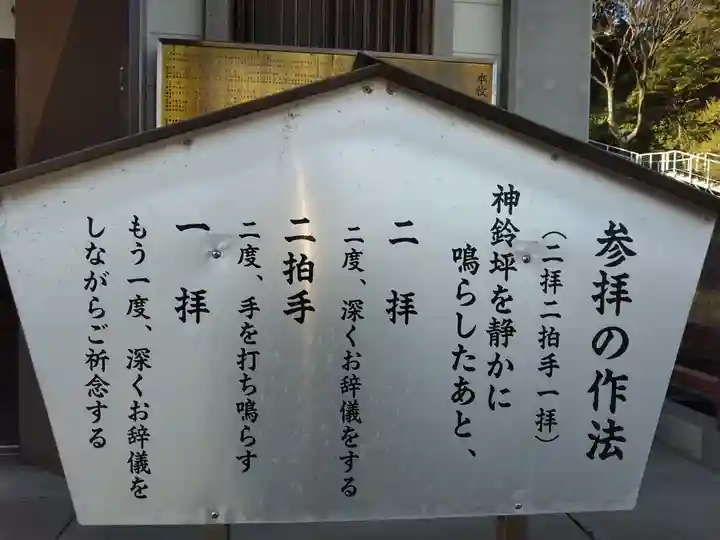 参拝の作法
（二拝二拍手一拝）
神鈴坪を静かに
鳴らしたあと、
二拝
二度、深くお辞儀をする
二拍手
二度、手を打ち鳴らす
一拝
もう一度、深くお辞儀を
しながらご祈念する